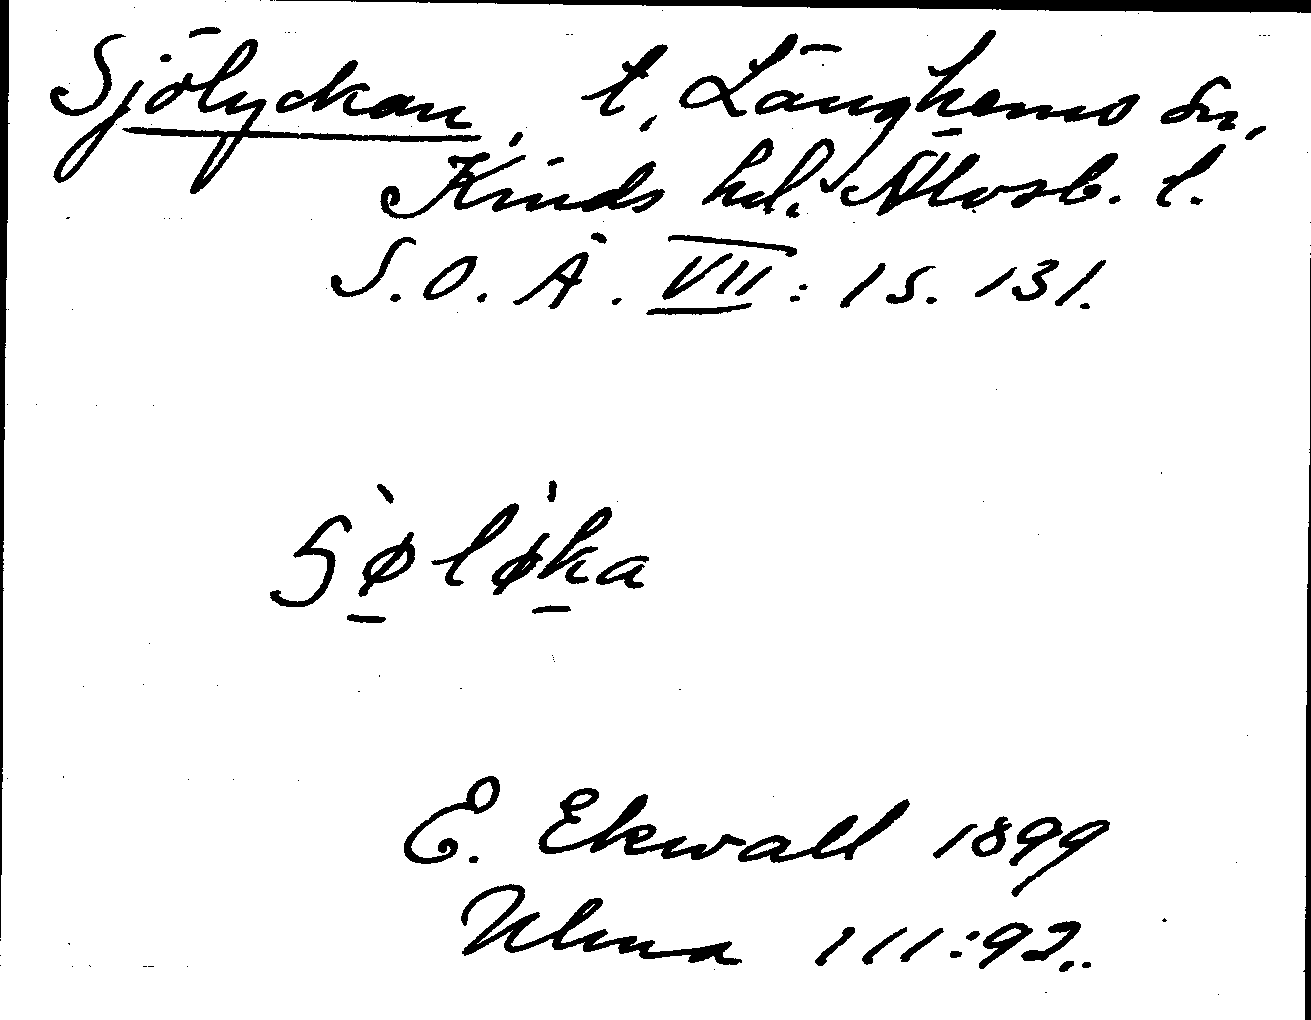 Sjölyckan, t, Länghems sn,
Kinds hd. Älvsb. l.
S.O.Ä. VII: 1 s. 131.
Sø̀lø̍ka
E. Ekwall 1899
Ulma 111:92.